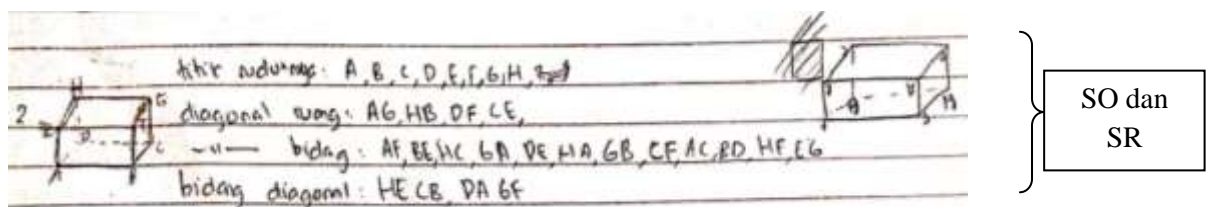 titik sudutnya: A, B, C, D, E, F, G, H,
2 diagonal ruang: AG, HB, DF, CE,
-"- bidang: AF, BE, HC, GD, DE, HA, GB, CF, AC, BD, HF, EG
bidang diagonal: HE CB, DA GF
SO dan
SR